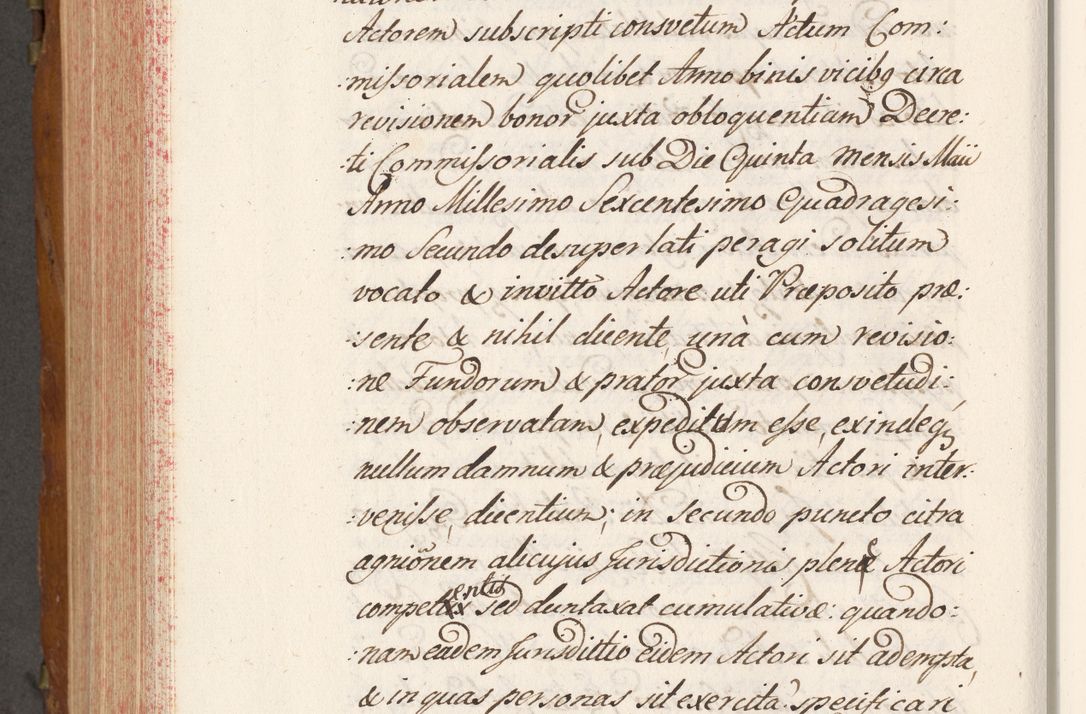 Actorem subscripti consvetum Actum Com:
:mifsorialem quolibet Anno binis vicibq circa
revisionem bonor juxta obloquentiam Decre:
:ti Commifsorialis sub Die Quinta mensis Maii
Anno Millesimo Sexcentesimo Quadragesi:
:mo Secundo desuper lati peragi solitum
vocato & invitto Actore uti Præposito præ:
:sente & nihil dicente, unà cum revisio:
:ne Fundorum & prator juxta consvetudi:
:nem observatam, expeditum efse, exindeq,
nullum damnum & præjudicium Actori inter:
:venifse, dicentium; in Secundo puncto citra
agniõnem alicujus Jurisdictionis plenæ Actori
competentis sed duntaxat cumulativæ: quando:
:nam eadem Jurisdittio Eidem Actori sit adempta,
& in quas personas sit exercita? specificari